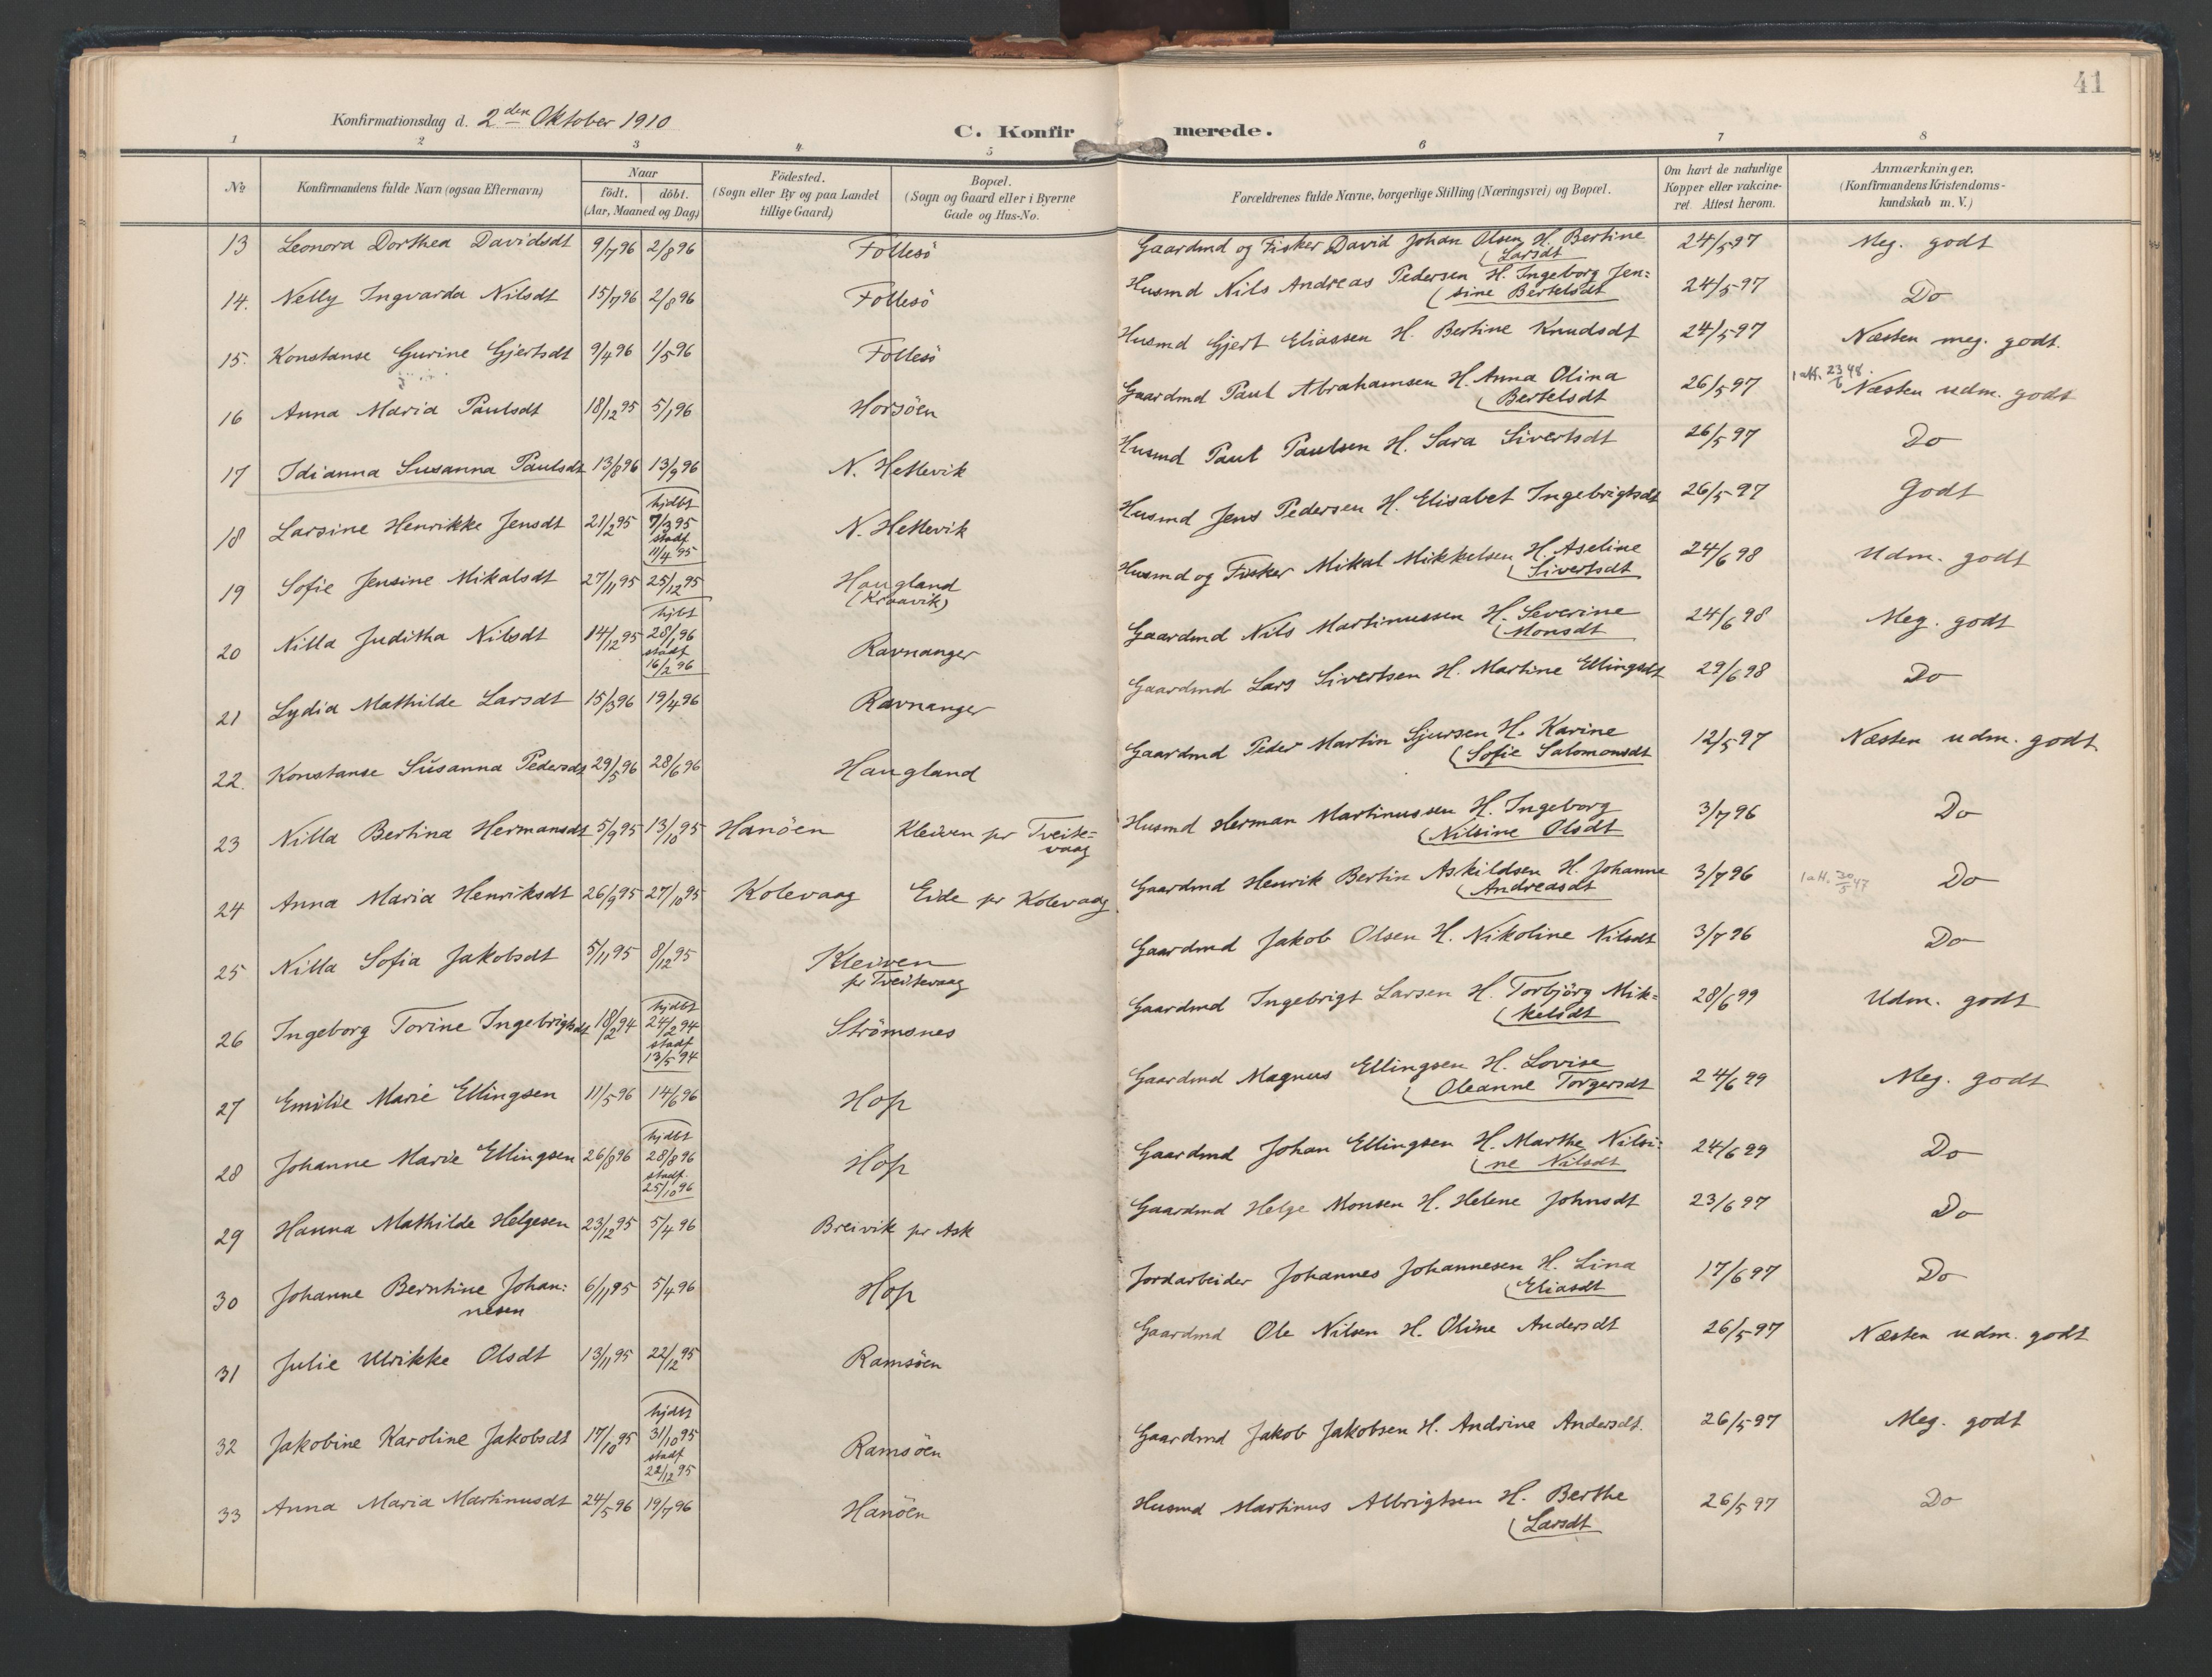 41
Konfirmationsdag d. 2den Oktober 1910
C. Konfirmerede.
1 2 3 4 5 6 7 8
No
Konfirmandens fulde Navn (ogsaa Efternavn)
Naar
født. døbt.
(Aar, Maaned og Dag)
Fødested.
(Sogn eller By og paa Landet
tillige Gaard)
Bopæl.
(Sogn og Gaard eller i Byerne
Gade og Hus-No.
Forældrenes fulde Navne, borgerlige Stilling (Næringsvei) og Bopæl.
Om havt de naturlige
Kopper eller vakcine-
ret. Attest herom.
Anmærkninger.
(Konfirmandens Kristendoms-
kundskab m. V.)
13 Leonora Dorthea Davidsdt 9/7 96 2/8 96 Follesö Gaardmd og Fisker David Johan Olsen H. Bertine 24/5 97 Meg. godt
(Larsdt
14. Nelly Ingvarda Nilsdt 15/7 96 2/8 96 Follesö Husmd Nils Andreas Pedersen H. Ingeborg Jen= 24/5 97 Do
(sine Bertelsdt
15. Konstanse Gurine Gjertsdt 9/4 96 1/5 96 Follesö Husmd Gjert Eliassen H. Bertine Knudsdt 24/5 97 Næsten meg. godt.
16 Anna Maria Paulsdt 18/12 95 5/1 96 Horsöen Gaardmd Paul Abrahamsen H. Anna Olina 26/5 97 1 att. 23/6 48. Næsten udm. godt
(Bertelsdt
17 Idianna Susanna Paulsdt 13/8 96 13/9 96 N. Hellevik Husmd Paul Paulsen H. Sara Sivertsdt 26/5 97 Do
18 Larsine Henrikke Jensdt 21/2 95 hjdbt 7/3 95 stadf 11/4 95 N. Hellevik Husmd Jens Pedersen H. Elisabet Ingebrigtsdt 26/5 97 Godt
19 Sofie Jensine Mikalsdt 27/11 95 25/12 95 Haugland Husmd og Fisker Mikal Mikkelsen H. Aseline 24/6 98 Udm. godt
(Kraavik) (Sivertsdt
20 Nilla Juditha Nilsdt 14/12 95 hjbt 28/1 96 stadf 16/2 96 Ravnanger Gaardmd Nils Martinussen H. Severine 24/6 98 Meg. godt
(Monsdt
21 Lydia Mathilde Larsdt 15/3 96 19/4 96 Ravnanger Gaardmd Lars Sivertsen H. Martine Ellingsdt 29/6 98 Do
22. Konstanse Susanna Pedersdt 29/5 96 28/6 96 Haugland Gaardmd Peder Martin Sjursen H. Karine 12/5 97 Næsten udm. godt
(Sofie Salomonsdt
23 Nilla Bertina Hermansdt 5/9 95 13/10 95 Hanöen Kleiven pr Tveite= Husmd Herman Martinussen H. Ingeborg 3/7 96 Do
vaag (Nilsine Olsdt
24 Anna Maria Henriksdt 26/9 95 27/10 95 Kolevaag Eide pr Kolevaag Gaardmd Henrik Bertin Askildsen H. Johanne 3/7 96 1 att. 30/5 47 Do
(Andreasdt
25 Nilla Sofia Jakobsdt 5/11 95 8/12 95 Kleiven Gaardmd Jakob Olsen H. Nikoline Nilsdt 3/7 96 Do
pr Tveitevaag
26 Ingeborg Torine Ingebrigtsdt 18/2 94 hjdbt 24/2 94 stadf 13/5 94 Strömsnes Gaardmd Ingebrigt Larsen H. Torbjörg Mik= 28/6 99 Udm. godt
(kelsdt
27 Emilie Marie Ellingsen 11/5 96 14/6 96 Hop Gaardmd Magnus Ellingsen H. Lovise 24/6 99 Meg. godt
(Oleanne Torgersdt
28 Johanne Marie Ellingsen 26/8 96 hjdbt 28/8 96 stadf. 25/10 96 Hop Gaardmd Johan Ellingsen H. Marthe Nilsi= 24/6 99 Do
(ne Nilsdt
29 Hanna Mathilde Helgesen 23/12 95 5/4 96 Breivik pr Ask Gaardmd Helge Monsen H. Helene Johnsdt 23/6 97 Do
30 Johanne Berntine Johan= 6/11 95 5/4 96 Hop Jordarbeider Johannes Johannesen H. Lina 17/6 97 Do
nesen (Eliasdt
31 Julie Ulrikke Olsdt 13/11 95 22/12 95 Ramsöen Gaardmd Ole Nilsen H. Oline Andersdt 26/5 97 Næsten udm. godt
32 Jakobine Karoline Jakobsdt 17/10 95 hjdbt 31/10 95 stadf 22/12 95 Ramsöen Gaardmd Jakob Jakobsen H. Andrine Andersdt. 26/5 97 Meg. godt
33 Anna Maria Martinusdt 24/5 96 19/7 96 Hanöen Husmd Martinus Albrigtsen H. Berthe 26/5 97 Do
(Larsdt